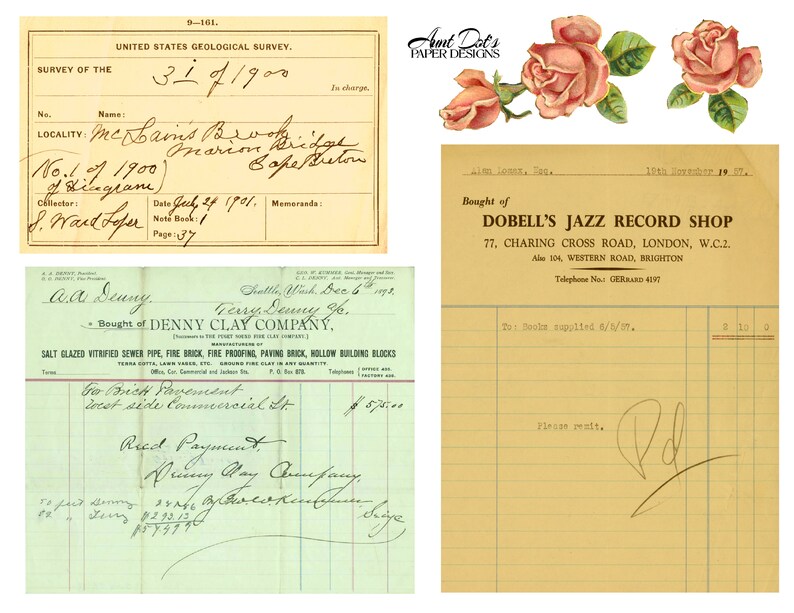 9—161.
UNITED STATES GEOLOGICAL SURVEY.
SURVEY OF THE 3 i of 1900
In charge.
No. Name:
LOCALITY: McLain's Brook
Marion Bridge
Cape Breton
No. 1 of 1900
of Diagram)
Collector: Date July 24 1901. Memoranda:
S. Ward Loper Note Book: 1
Page: 37
Aunt Dot's
PAPER DESIGNS
A. A. DENNY, President. GEO. W. KUMMER, Genl. Manager and Sec.
O. D. DENNY, Vice President. C. L. DENNY, Asst. Manager and Treasurer.
Seattle, Wash. Dec 6th 1893.
A. A. Denny.
Terry, Denny a/c.
Bought of DENNY CLAY COMPANY,
[Successors to THE PUGET SOUND FIRE CLAY COMPANY.]
MANUFACTURERS OF
SALT GLAZED VITRIFIED SEWER PIPE, FIRE BRICK, FIRE PROOFING, PAVING BRICK, HOLLOW BUILDING BLOCKS
TERRA COTTA, LAWN VASES, ETC. GROUND FIRE CLAY IN ANY QUANTITY.
Terms Office, Cor. Commercial and Jackson Sts. P. O. Box 878. Telephones OFFICE 455.
FACTORY ADS.
For Brick Pavement
West side Commercial St. $575.00
Recd Payment,
Denny Clay Company,
By Geo. W. Kummer
50 feet Denny
" Terry $293.12
Alan Lomax, Esq. 19th November 19 57.
Bought of
DOBELL'S JAZZ RECORD SHOP
77, CHARING CROSS ROAD, LONDON, W.C.2.
Also 104, WESTERN ROAD, BRIGHTON
Telephone No.: GERrard 4197
To: Books supplied 6/5/57. 2 10 0
Please remit.
Pd